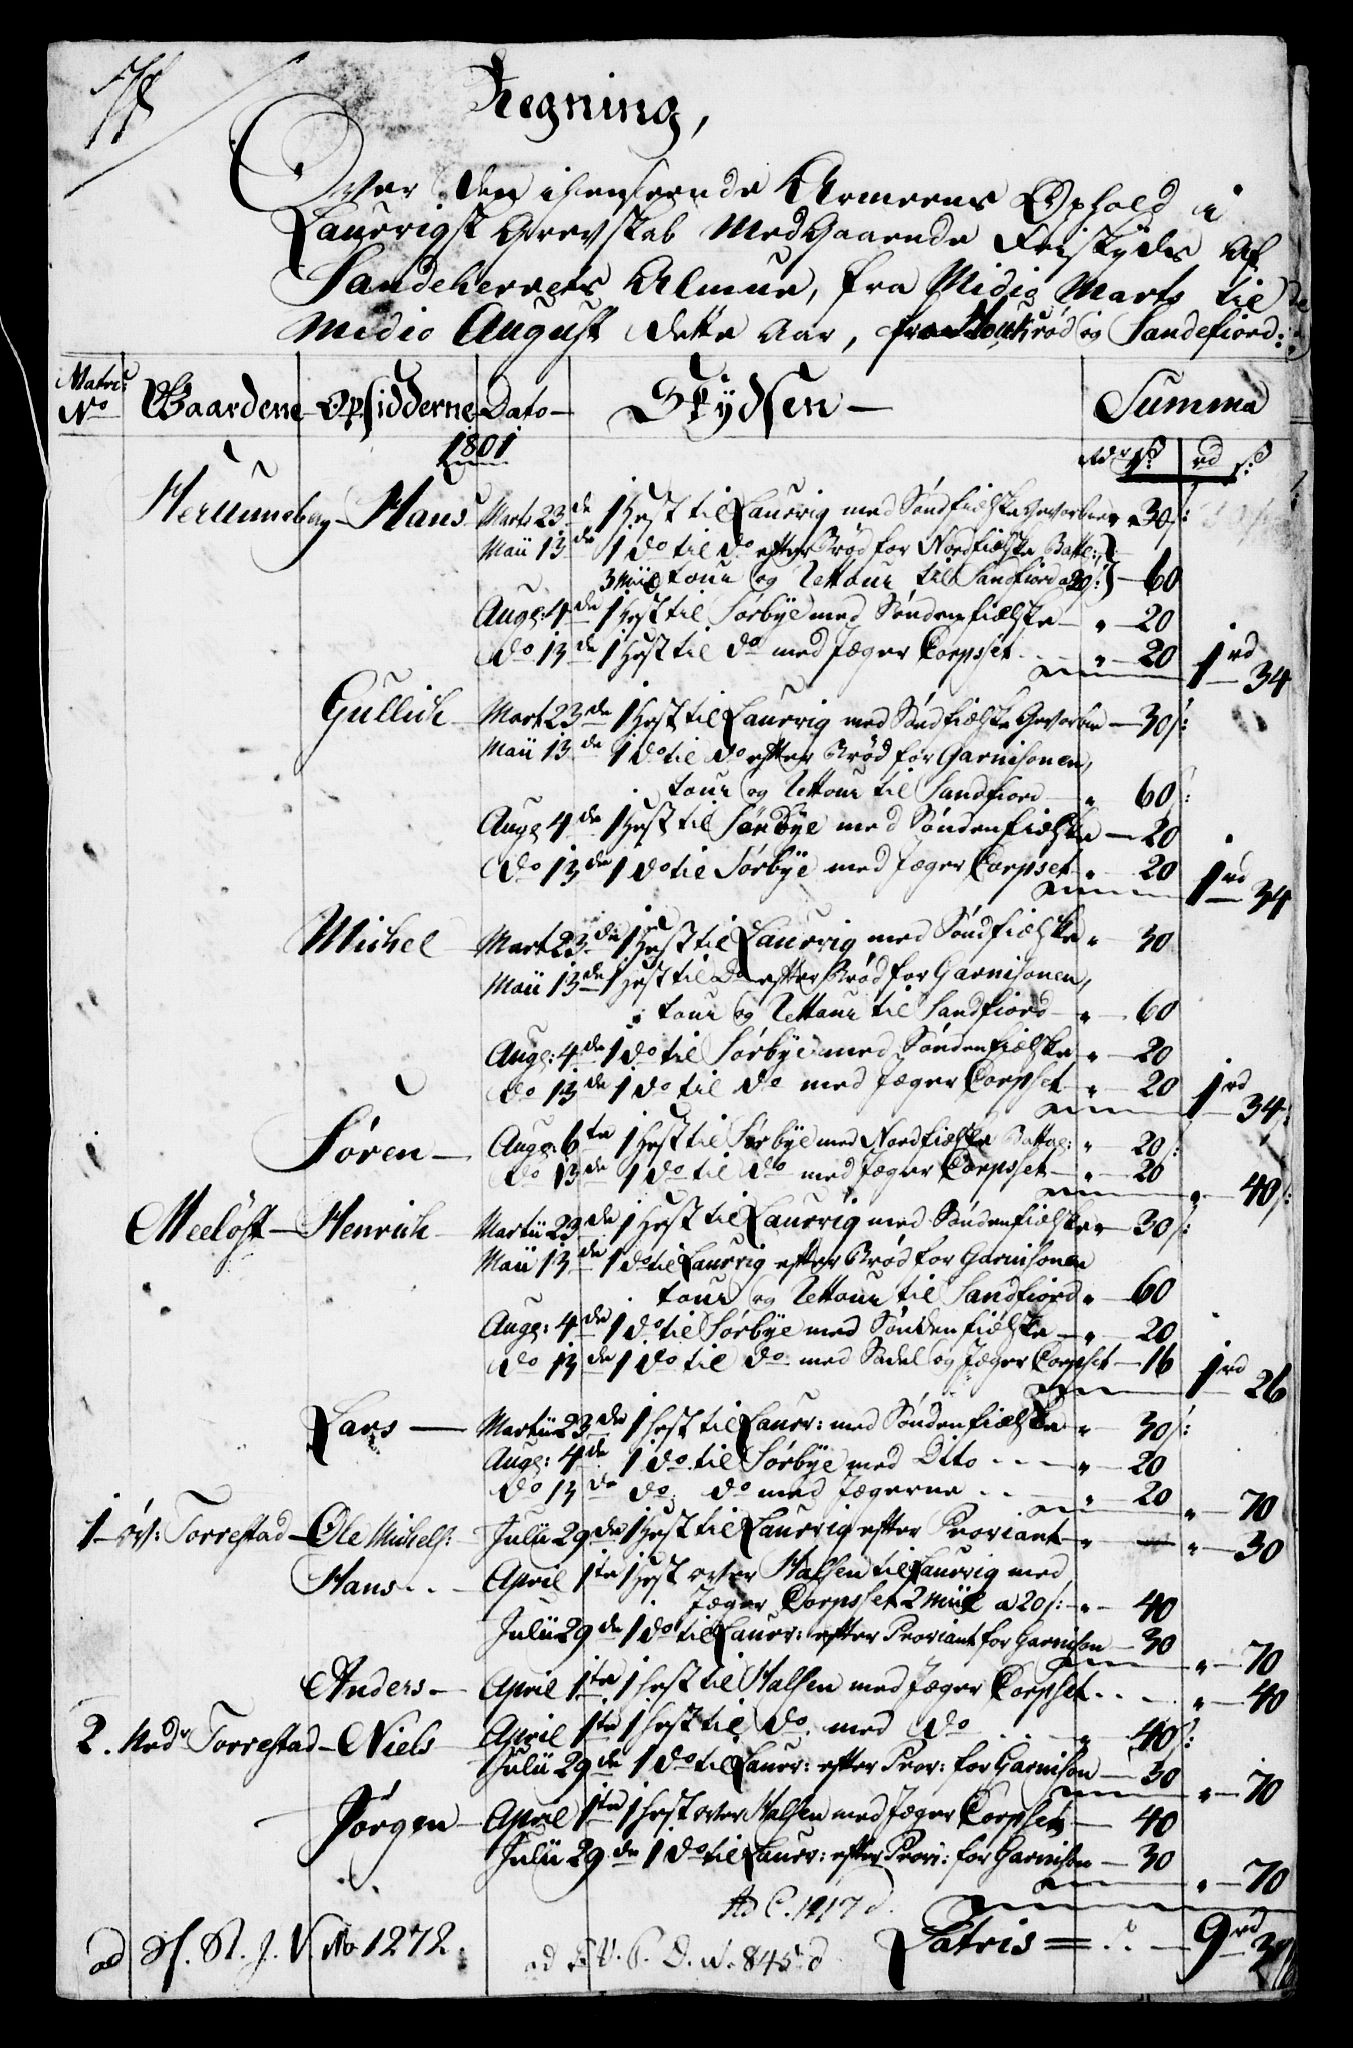 Regning,
Over den ihenseende Armeens Ophold i
Laurvigs Grevskab Medgaaende Friskyds af
Sandeherreds Almue, fra Midio Marts til
Midio August dette Aar, fra Haukerød og Sandefiord:
Matric: No Gaardene Opsidderne Dato Skydsen Summa
1801 rd s: rd s:
Hans Marts 23de 1 Hest til Laurvig med Søndfieldske Gevorbne " 30 s:
Maii 13de 1 do til do efter Brød for Nordfieldske Batl:
3 Miil tour og Rettour til Sandfiord a 20 s: 60
Aug: 4de 1 Hest til Sørbye med Søndenfielske " 20
do 13de 1 Hest til do med Jæger Corpsset " 20 1rd 34
Gullich Mart 23de 1 Hest til Laurvig med Søndfielske Gevorbne 30 s:
Maii 13de 1 do til do efter Brød for Garnisonen,
tour og Rettour til Sandfiord " 60 s:
Aug: 4de 1 Hest til Sørbye med Søndenfielske 20
do 13de 1 do til Sørbye med Jæger Corpset " 20 1rd 34
Michel Mart 23de 1 Hest til Laurvig med Søndfielske " 30
Maii 13de 1 Hest til do efter Brød for Garnisonen,
tour og Rettour til Sandfiord " 60
Aug: 4de 1 do til Sørbye med Søndenfielske " 20
do 13de 1 do til do med Jæger Corpset " 20 1rd 34:
Søren Aug: 6te 1 Hest til Sørbye med Nordfielske Battl: " 20 s:
do 13de 1 do til do med Jæger Corpsset " 20 " 40 s:
Meeløst Henrich Martii 23de 1 Hest til Laurvig med Søndenfielske " 30 s:
Maii 13de 1 do til Laurvig efter Brød for Garnisonen
tour og Rettour til Sandfiord " 60
Aug: 4de 1 do til Sørbye med Søndenfielske " 20
do 13de 1 do til do med Sadel og Jæger Corpset 16 1rd 26
Lars Martii 23de 1 Hest til Laurv: med Søndenfielske " 30 s:
Aug: 4de 1 do til Sørbye med Ditto " 20
do 13de do do med Jægerne " 20 " 70
1 øv: Torrestad Ole Michels: Julii 29de 1 Hest til Laurvig efter Proviant " — " 30
Hans April 1te 1 Hest over Halsen til Laurvig med
Jæger Corpsset 2 Miil a 20 s: " 40
Julii 29de 1 do til Laurv: efter Proviant for Garnison 30 " 70
Anders April 1te 1 Hest til Halsen med Jæger Corpset " 40
2. Nedr Torrestad Niels April 1te 1 Hest til do med do " 40 s:
Julii 29de 1 do til Laurv: efter Prov: for Garnison 30 " 70
Jørgen April 1te 1 Hest over Halsen med Jæger Corpset 40
Julii 29de 1 do til Laurv: efter Prov: for Garnison 30 " 70
Ad C. 1417 d.
Latris 9rd
ad No 1272.